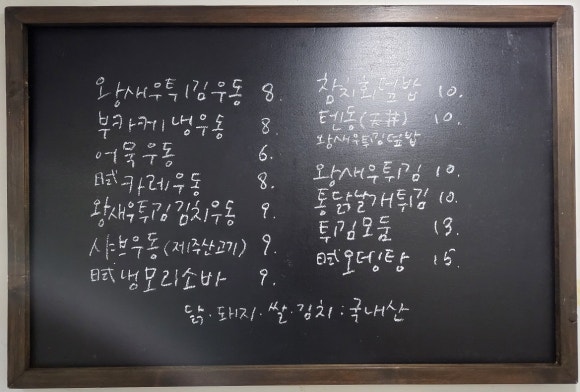 왕새우튀김우동 8.
부카케냉우동 8.
어묵우동 6.
日式 카레우동 8.
왕새우튀김김치우동 9.
샤브우동 (제주산고기) 9.
日式 냉모리소바 9.
참치회덮밥 10.
텐동(天丼) 10.
왕새우튀김덮밥
왕새우튀김 10.
통닭날개튀김 10.
튀김모둠 13.
日式오뎅탕 15.
닭·돼지·쌀·김치:국내산